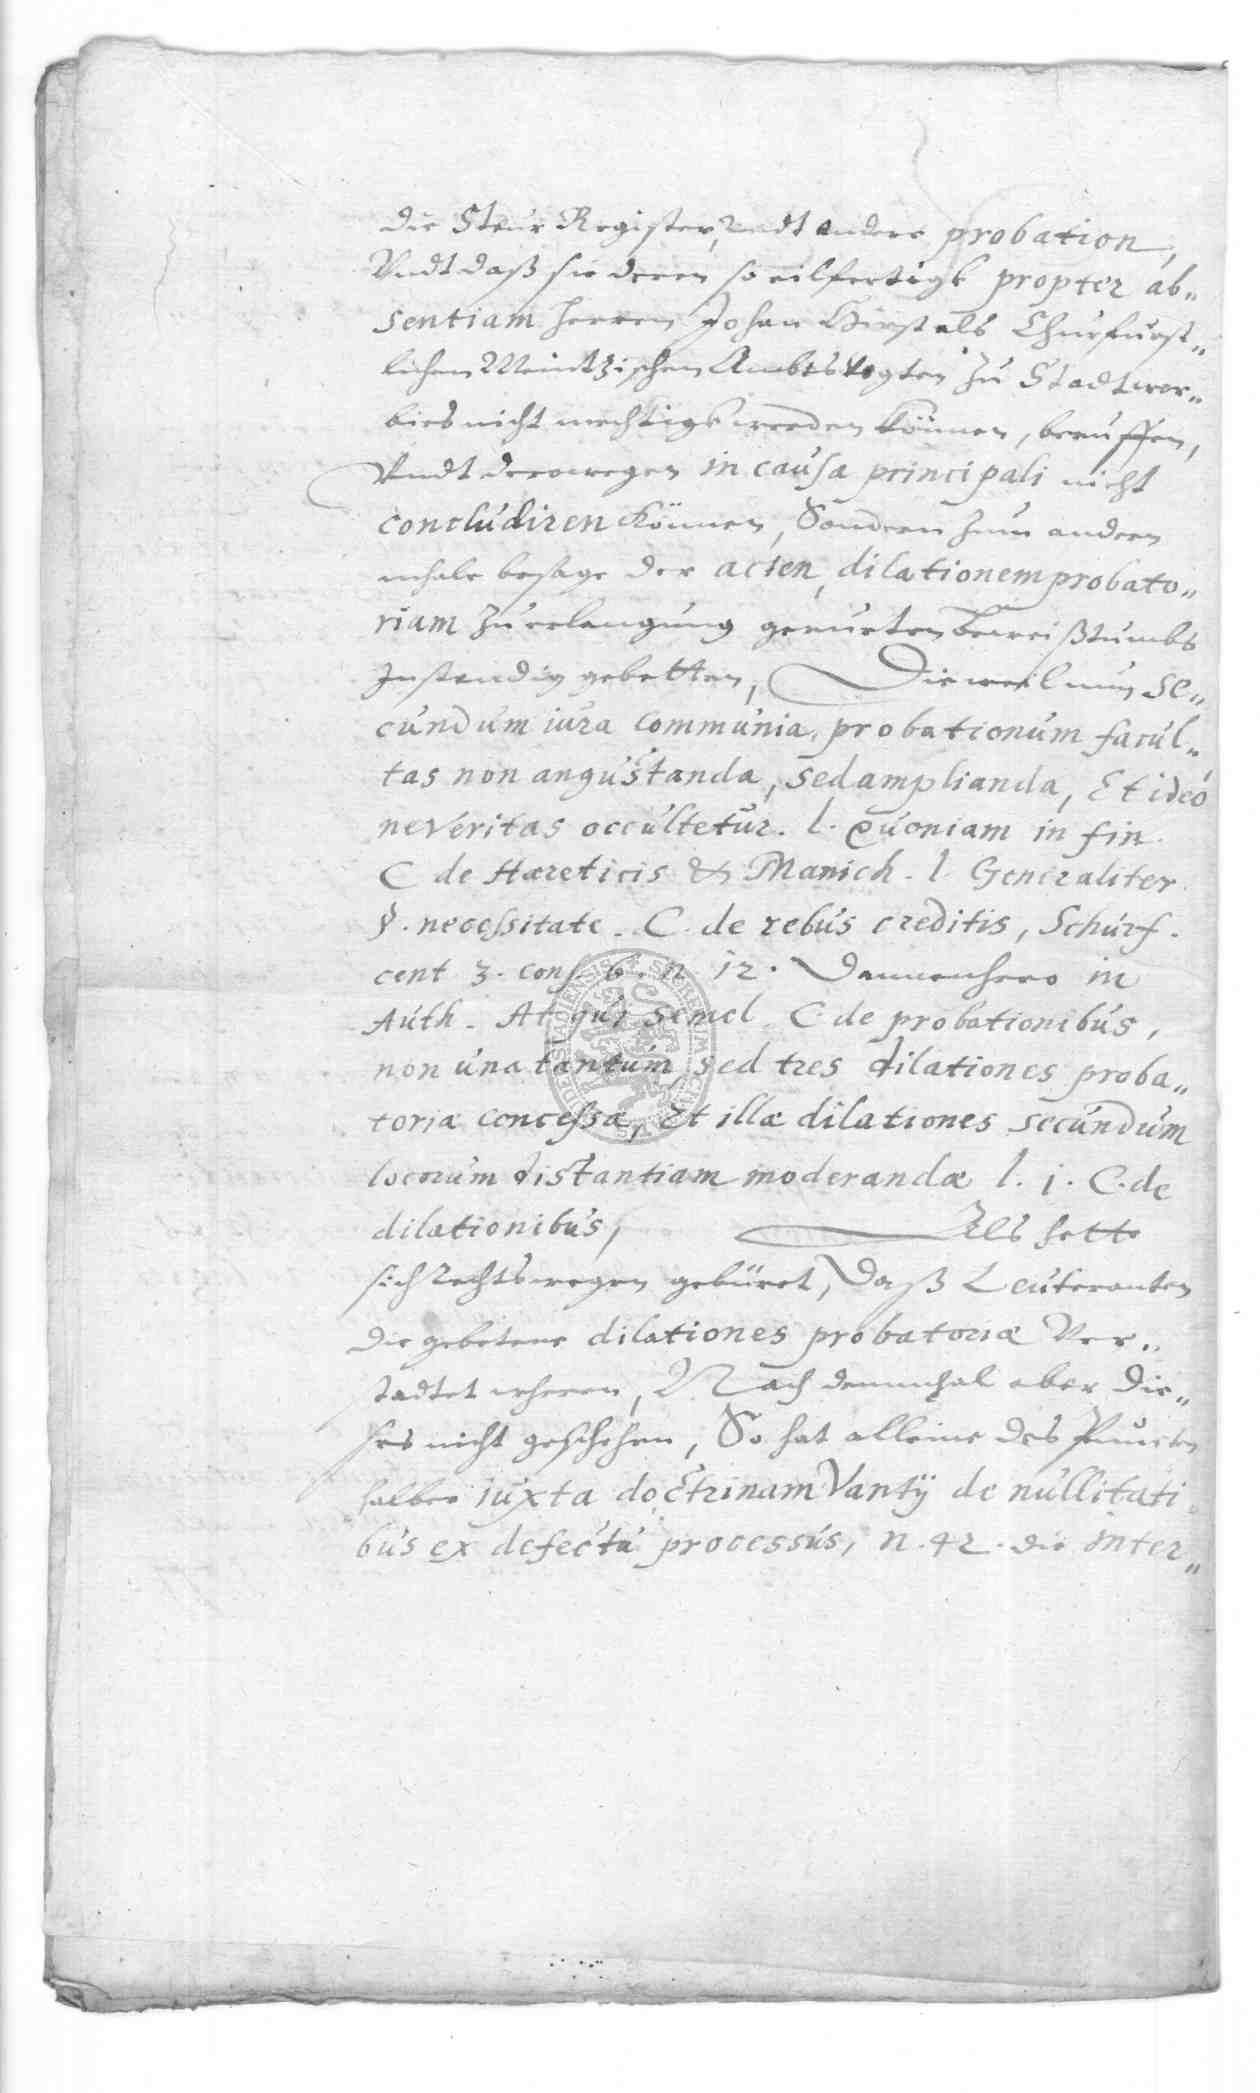 die Steur Register, undt andere probation,
Undt daß sie deren so eilfertigk propter ab„
sentiam Herren Johan Hirst als Churfürst„
lichen Meintzischen Ambtsvogten zu Stadtwor„
bies nicht mechtigk werden können, beruffen,
Undt derowegen in causa principali nicht
concludiren können, Sondern zum andern
mhale besage der acten, dilationem probato„
riam zu erlangung gerurten beweißtumbs
Instendig gebetten, Dieweil nun se„
cundum iura communia, probationum facul„
tas non angustanda, sed amplianda, Et ideò
ne veritas occultetur. l. Quoniam in fin.
C de Hæreticis & Manich. l Generaliter
§. necessitate. C. de rebus creditis, Schurf.
cent 3. cons. 6. n 12. Dannenhero in
Auth. At qui semel. C. de probationibus,
non una tantum, sed tres dilationes proba„
toriæ concessæ, Et illæ dilationes secundum
locorum distantiam moderandæ l. j. C. de
dilationibus, Als hette
sich rechtswegen gebüret, Daß Leuteranten
die gebetene dilationes probatoriæ Ver„
stadtet wheren, Nach dem mhal aber die„
ses nicht geschehen, So hat alleine des Puncten
halber iuxta doctrinam Vantij de nullitati„
bus ex defectu processus, n. 42. die inter„